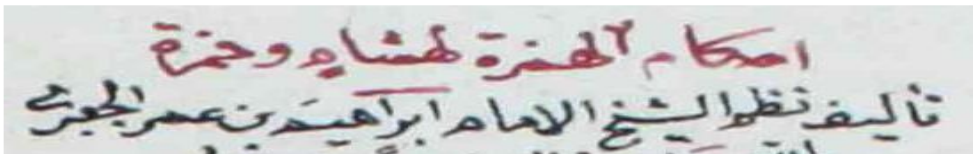 احكام الهمزة لهشام وحمزة
تأليف نظم الشيخ الامام ابراهيم بن عمر الجعبري